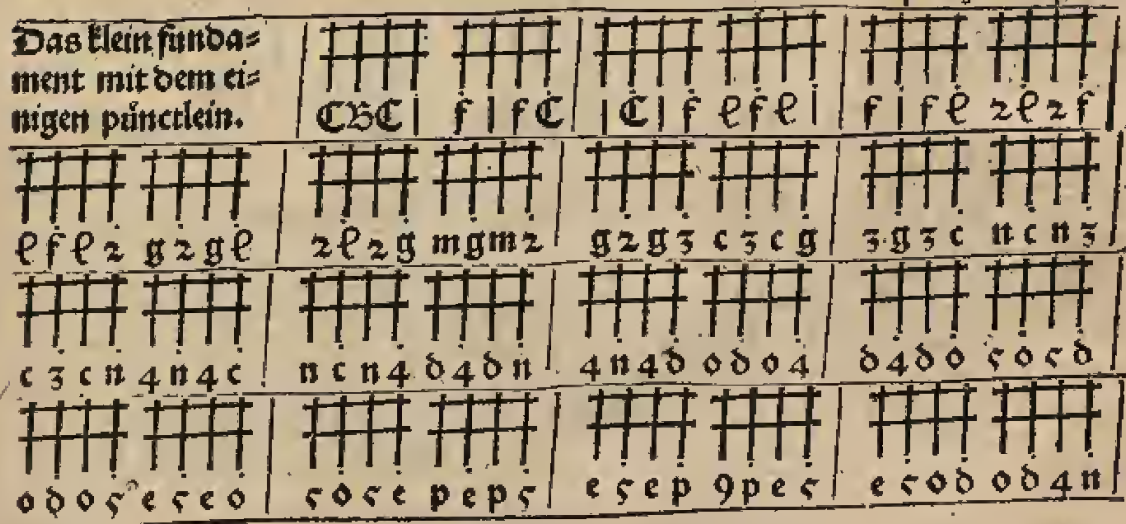 Das klein funda⸗
ment mit dem ei⸗
nigen pünctlein.
C B C | f | f C | C | f l f l | f | f l 2 l 2 f
l f l 2 g 2 g l 2 l 2 g m g m 2 g 2 g 3 c 3 c g 3 g 3 c n c n 3
c 3 c n 4 n 4 c n c n 4 d 4 d n 4 n 4 d o d o 4 d 4 d o 5 o 5 d
o d o 5 e 5 e o 5 o 5 e p e p 5 e 5 e p 9 p e 5 e 5 o d o d 4 n